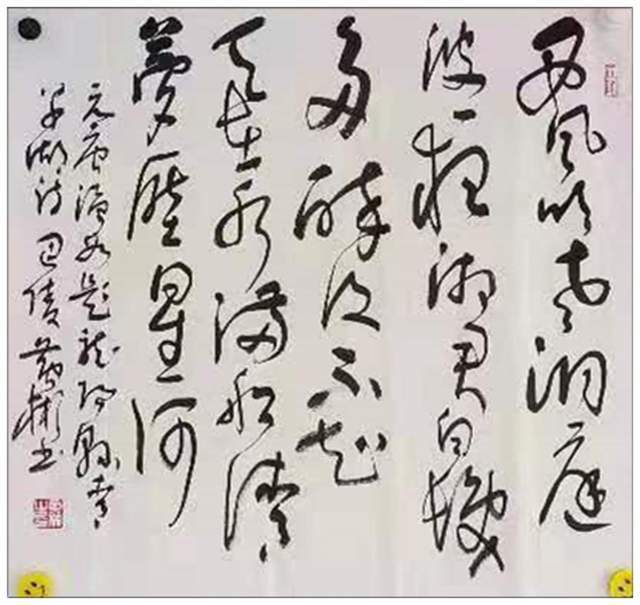 西风吹老洞庭
波一夜湘君白髮
多醉后不知
天在水满船清
梦压星河
元唐温如题龙阳县青
草湖诗 巴陵 彬书